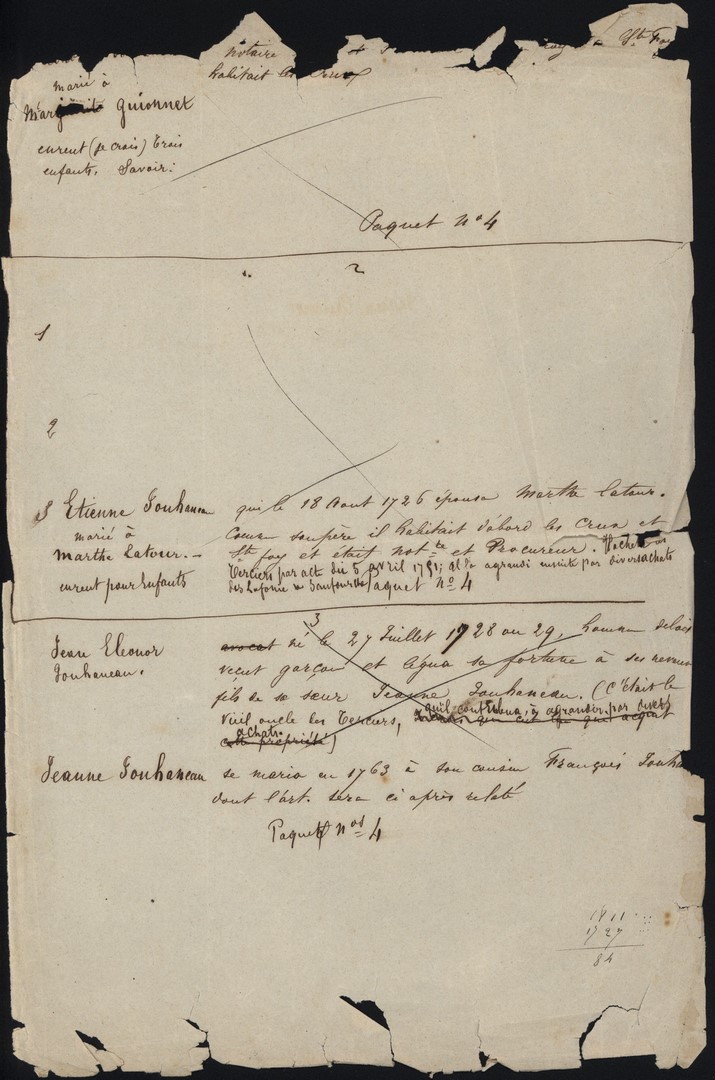 notaire
habitait les Crus
Ste Foy
marié à
Marguerite Guionnet
eurent (je crois) trois
enfants. Savoir:
Paquet no 4
2
1
2
3 Etienne Jouhaneau qui le 18 Aout 1726 épousa Marthe Latour.
marié à
Marthe Latour. -
eurent pour Enfants
Comme son père il habitait d'abord les Crus et
Ste foy et était not.re et Procureur.
Terciers par acte du 5 avril 1751; il l'a agrandi ensuite par divers achats
Paquet No 4
3
Jean Eleonor
Jouhaneau.
avocat né le 27 Juillet 1728 ou 29, homme
vécut garçon et légua sa fortune à ses neveux
fils de sa sœur Jeanne Jouhaneau. (C'était le
Vieil oncle des Terciers,
qu'il continua à agrandir par divers
achats.
cette propriété)
Jeanne Jouhaneau se maria en 1763 à son cousin François
dont l'art. sera ci après relaté
Paquet nos 4
1811
1727
84